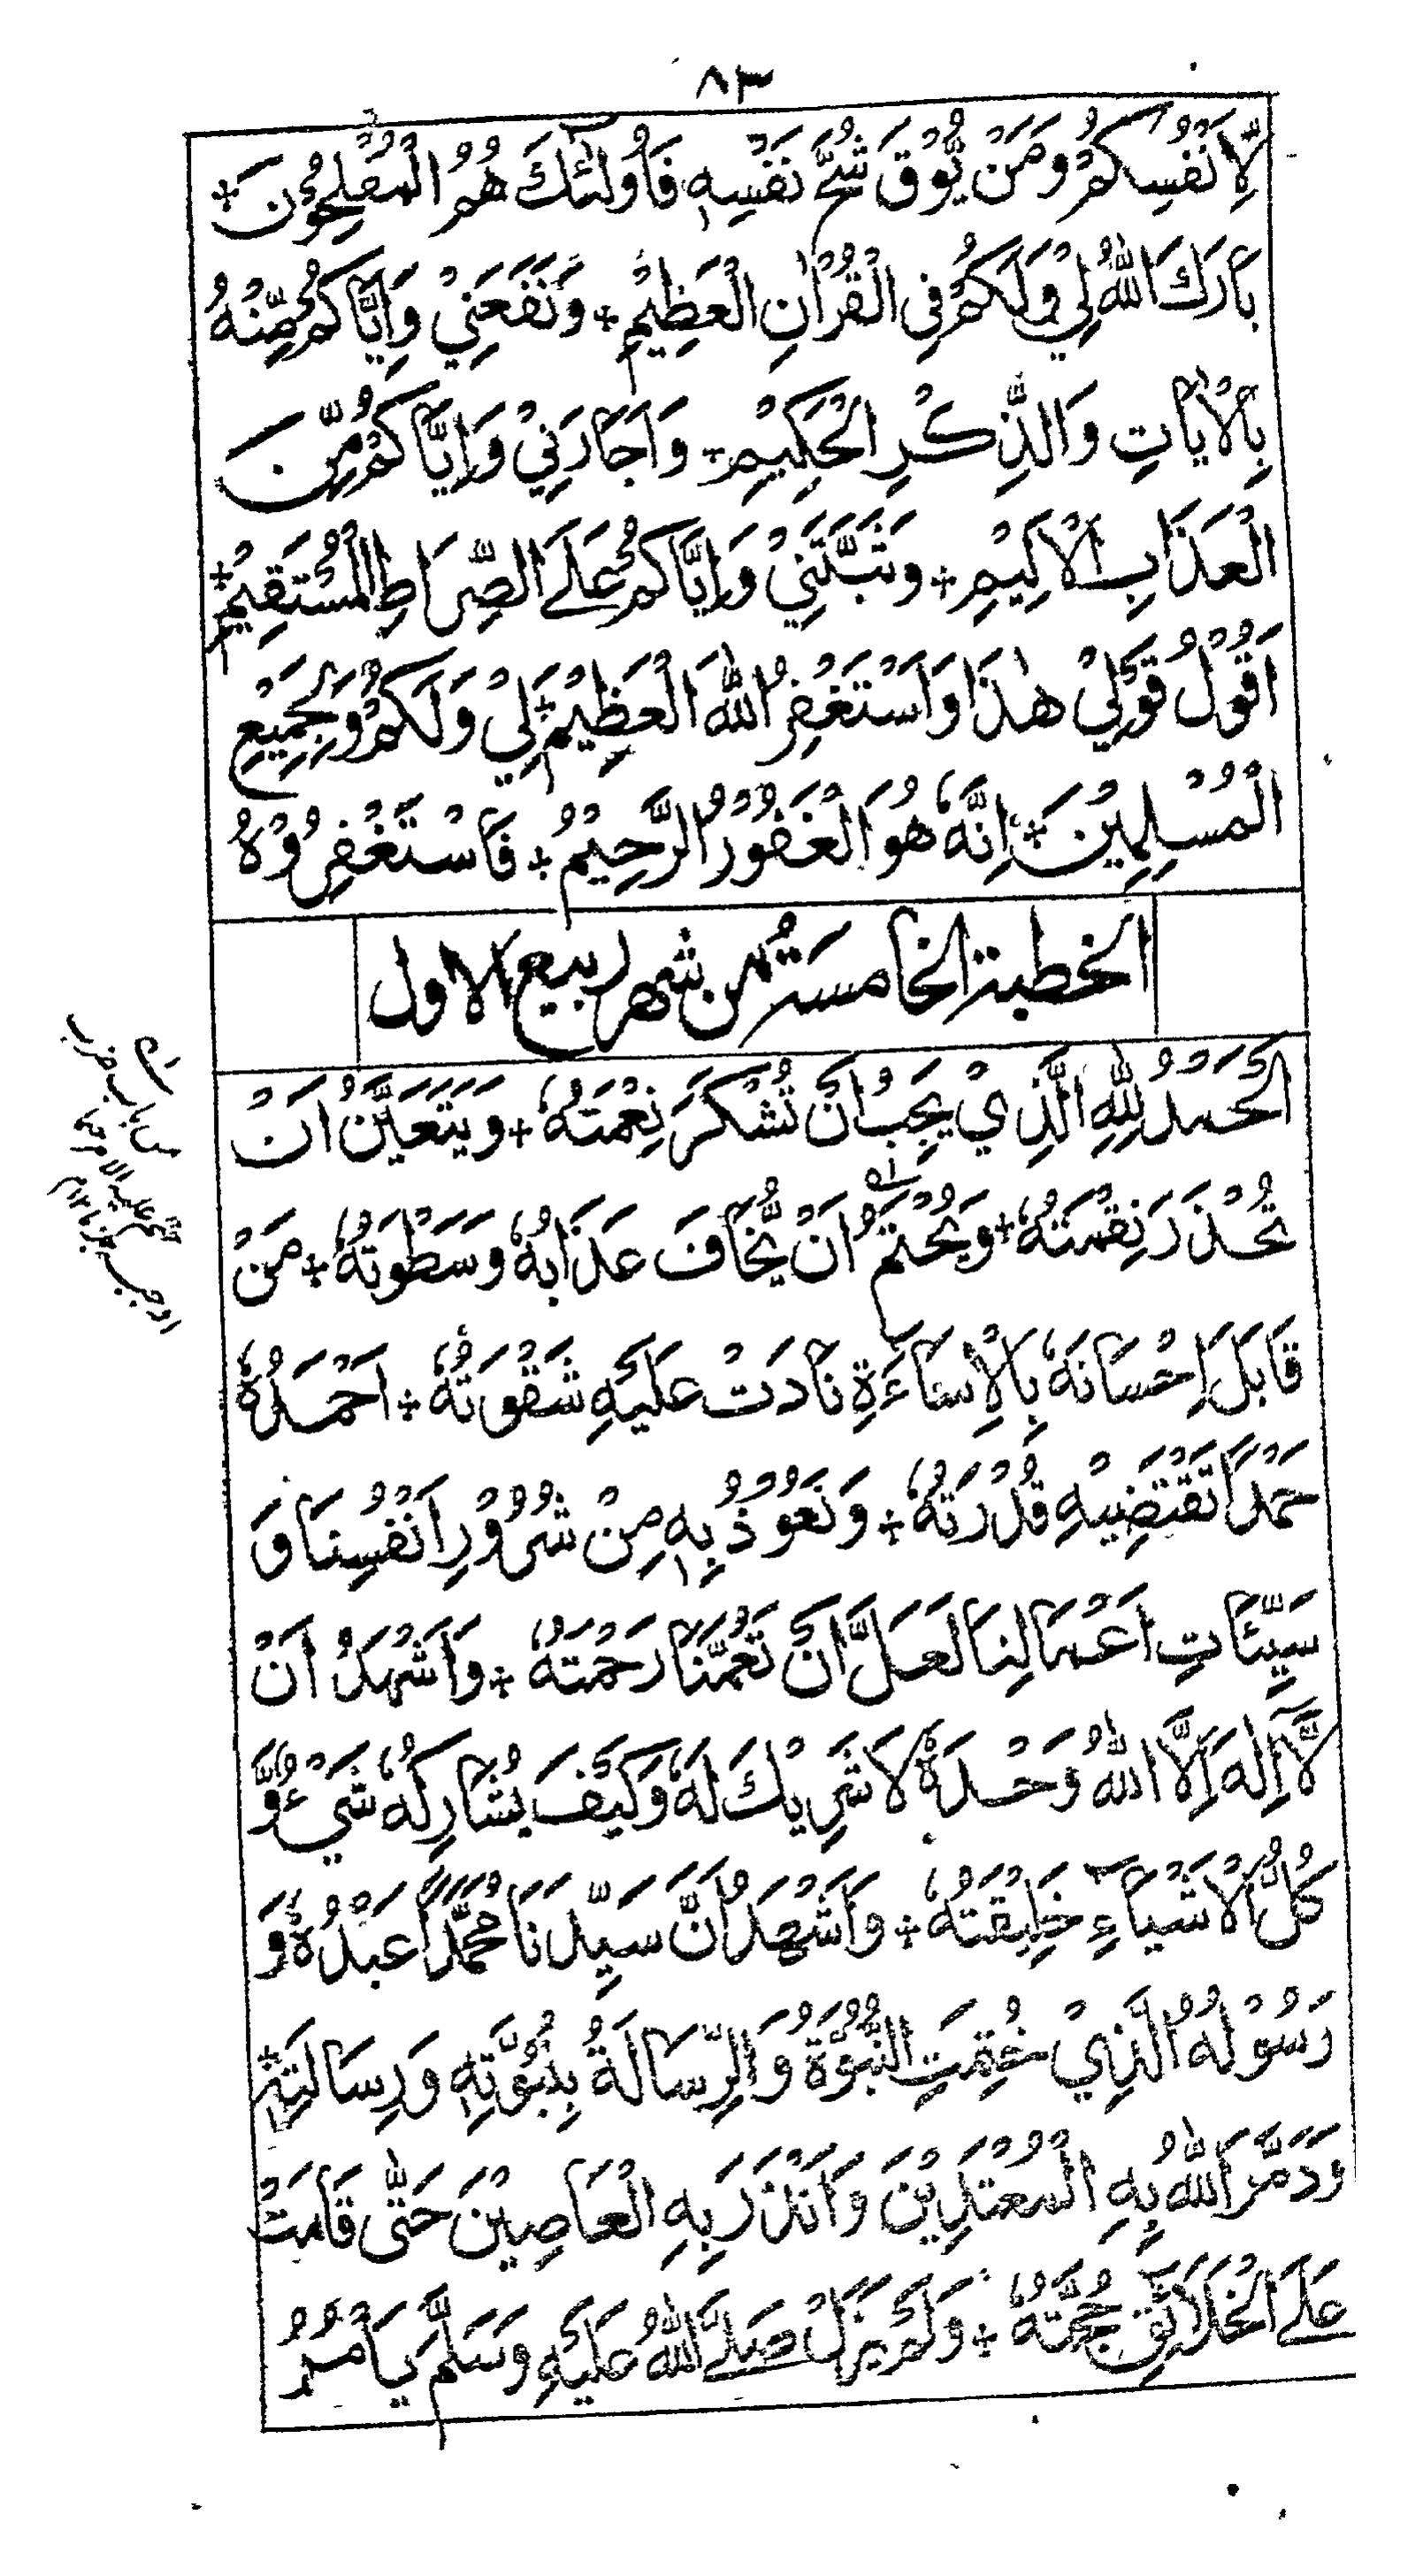 ٨٣
لِّاَنْفُسِكُمْ وَمَنْ يُّوْقَ شُحَّ نَفْسِهٖ فَاُولٰٓئِكَ هُمُ الْمُفْلِحُوْنَ +
بَارَكَ اللّٰهُ لِيْ وَلَكُمْ فِي الْقُرْاٰنِ الْعَظِيْمِ + وَنَفَعَنِيْ وَاِيَّاكُمْ مِّنْهُ
بِالْاٰيَاتِ وَالذِّكْرِ الْحَكِيْمِ + وَاَجَارَنِيْ وَاِيَّاكُمْ مِّنَ
الْعَذَابِ الْاَلِيْمِ + وَثَبَّتَنِيْ وَاِيَّاكُمْ عَلَى الصِّرَاطِ الْمُسْتَقِيْمِ +
اَقُوْلُ قَوْلِيْ هٰذَا وَاَسْتَغْفِرُ اللّٰهَ الْعَظِيْمَ + لِيْ وَلَكُمْ وَلِجَمِيْعِ
الْمُسْلِمِيْنَ + اِنَّهٗ هُوَ الْغَفُوْرُ الرَّحِيْمُ + فَاسْتَغْفِرُوْهُ
الخطبة الخامسة من شهر ربيع الاول
اَلْحَمْدُ لِلّٰهِ الَّذِيْ يَجِبُ اَنْ تُشْكَرَ نِعْمَتُهٗ + وَيَتَعَيَّنُ اَنْ
تُحْذَرَ نِقْمَتُهٗ + وَيَحْتَمُ اَنْ يُّخَافَ عَذَابُهٗ وَسَطْوَتُهٗ + مَنْ
قَابَلَ اِحْسَانَهٗ بِالْاِسَاءَةِ نَادَتْ عَلَيْهِ شَقْوَتُهٗ + اَحْمَدُهٗ
حَمْدًا تَقْتَضِيْهِ قُدْرَتُهٗ + وَنَعُوْذُ بِهٖ مِنْ شُرُوْرِ اَنْفُسِنَا وَ
سَيِّئَاتِ اَعْمَالِنَا لَعَلَّ اَنْ تَعُمَّنَا رَحْمَتُهٗ + وَاَشْهَدُ اَنْ
لَّا اِلٰهَ اِلَّا اللّٰهُ وَحْدَهٗ لَا شَرِيْكَ لَهٗ وَكَيْفَ يُشَارِكُهٗ شَيْءٌ وَّ
كُلُّ الْاَشْيَاءِ خَلِيْقَتُهٗ + وَاَشْهَدُ اَنَّ سَيِّدَنَا مُحَمَّدًا عَبْدُهٗ وَ
رَسُوْلُهُ الَّذِيْ خُتِمَتِ النُّبُوَّةُ وَالرِّسَالَةُ بِنُبُوَّتِهٖ وَرِسَالَتِهٖ +
وَدَمَّرَ اللّٰهُ بِهِ الْمُعْتَدِيْنَ وَاَنْذَرَ بِهِ الْعَاصِيْنَ حَتّٰى قَامَتْ
عَلَى الْخَلَائِقِ حُجَّتُهٗ + وَلَمْ يَزَلْ صَلَّى اللّٰهُ عَلَيْهِ وَسَلَّمَ يَأْمُرُ